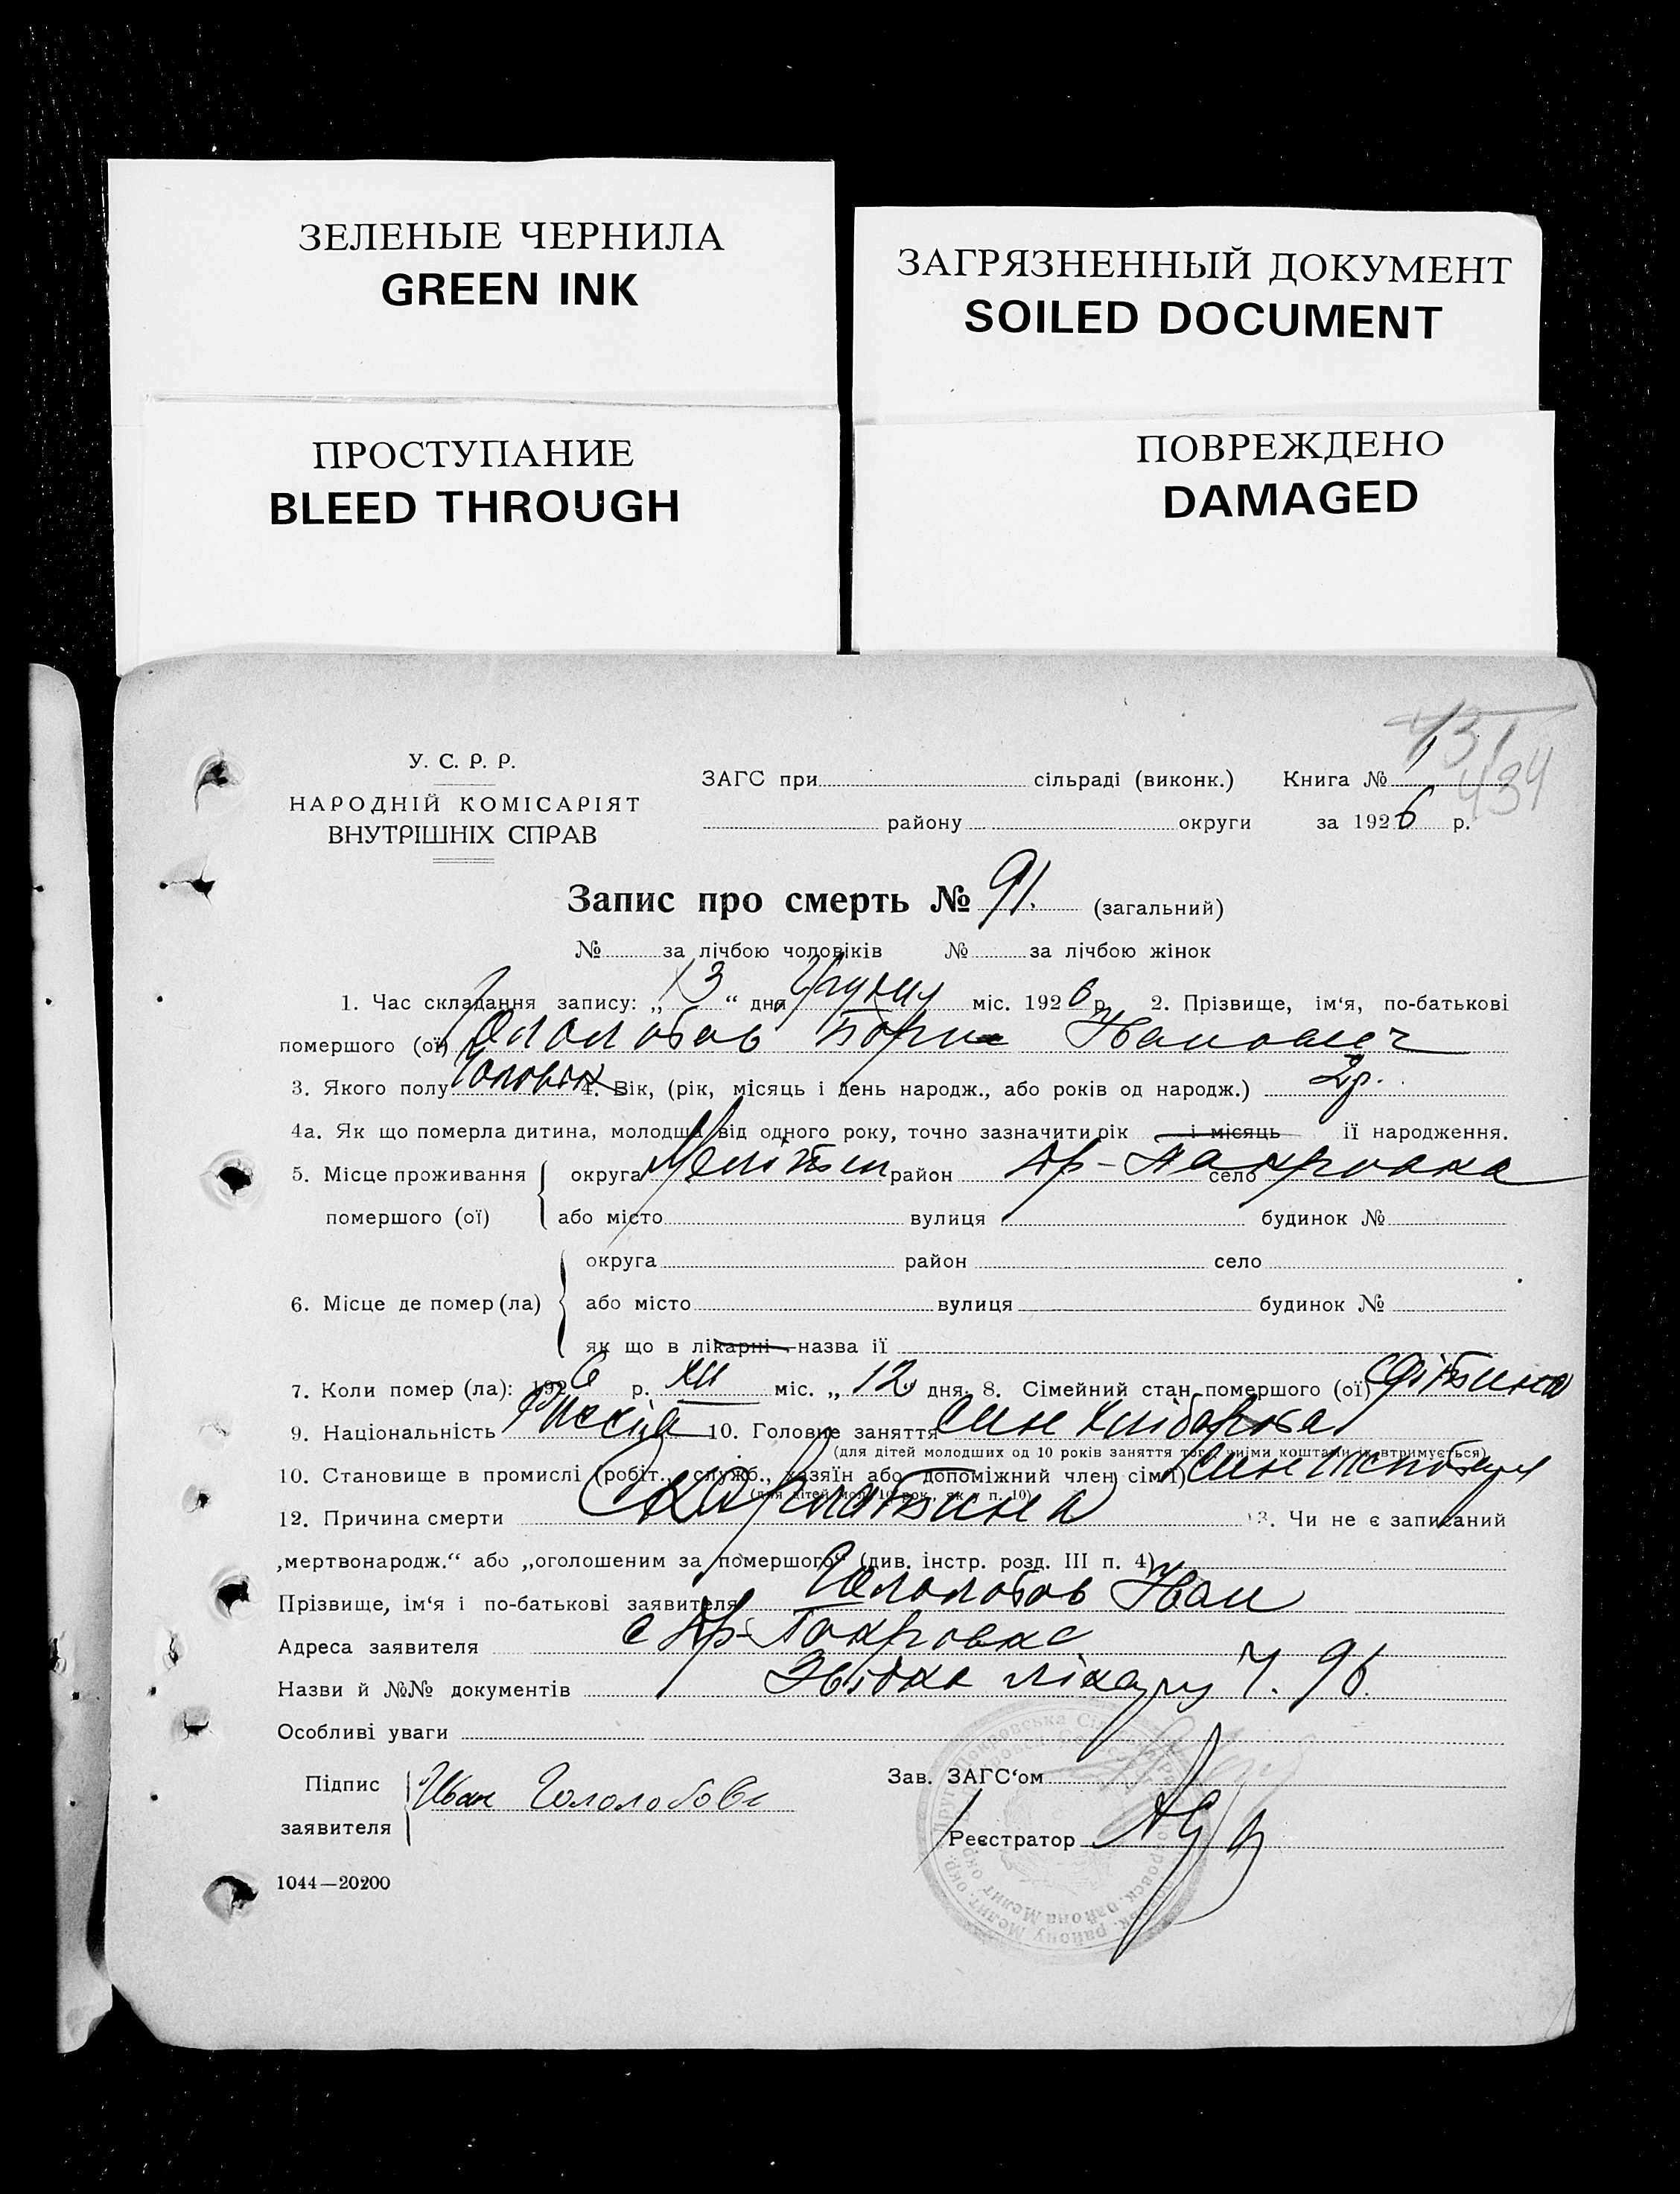 ЗЕЛЕНЫЕ ЧЕРНИЛА
GREEN INK
ЗАГРЯЗНЕННЫЙ ДОКУМЕНТ
SOILED DOCUMENT
ПРОСТУПАНИЕ
BLEED THROUGH
ПОВРЕЖДЕНО
DAMAGED
431
434
У. С. Р. Р.
НАРОДНІЙ КОМІСАРІЯТ
ВНУТРІШНІХ СПРАВ
ЗАГС при сільраді (виконк.) Книга № 1
району округи за 1926 р.
Запис про смерть № 91. (загальний)
№ за лічбою чоловіків № за лічбою жінок
1. Час складання запису: „13“ дня Грудня міс. 1926 р. 2. Прізвище, ім‘я, по-батькові
помершого (ої) Гололобов Борис Иванович
3. Якого полу Чоловік 4. Вік, (рік, місяць і день народж., або років од народж.) 2 р.
4а. Як що померла дитина, молодша від одного року, точно зазначити рік і місяць її народження.
5. Місце проживання округа Меліт район село Др-Покровка
помершого (ої) або місто вулиця будинок №
округа район село
6. Місце де помер (ла) або місто вулиця будинок №
як що в лікарні назва її
7. Коли помер (ла): 1926 р. XII міс. „12„ дня. 8. Сімейний стан помершого (ої) Дітина
9. Національність 10. Головне заняття Син Хлібороба
(для дітей молодших од 10 років заняття того, чиїми коштами їх втримується)
10. Становище в промислі (робіт., служб., хазяїн або допоміжний член сім‘ї) Син
(для дітей мол. 10 рок., як у п. 10)
12. Причина смерти Скарлатина 13. Чи не є записаний
„мертвонародж.“ або „оголошеним за помершого“ (див. інстр. розд. III п. 4)
Прізвище, ім‘я і по-батькові заявителя Гололобов Иван
Адреса заявителя с Др-Покровка
Назви й №№ документів Звідка лікару Ч. 96.
Особливі уваги
Підпис Иван Гололобовъ
заявителя
Зав. ЗАГС‘ом
Реєстратор
1044—20200